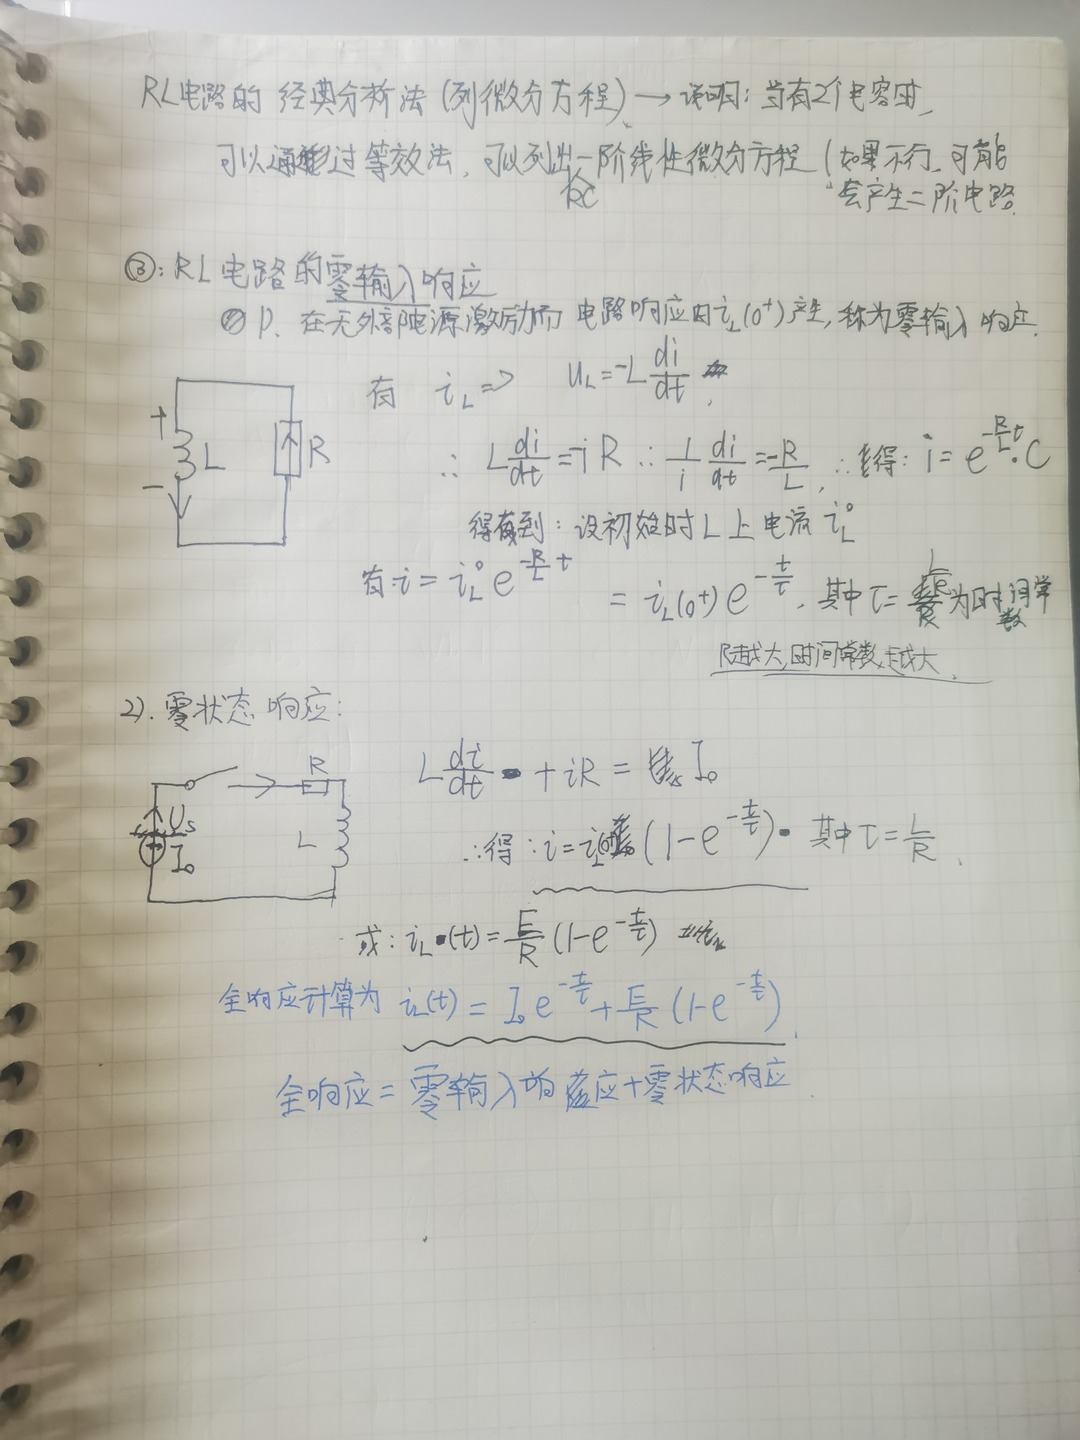 RL电路的 经典分析法 (列微分方程) → 说明: 当有2个电容时,
可以通过等效法, 可以列出一阶线性微分方程 (如果不行, 可能
RC
会产生二阶电路
③: RL电路的零输入响应
1). 在无外部电源激励而 电路响应由 i_L(0⁺)产生, 称为零输入响应.
有 i_L => u_L = -L di/dt
+ L - R
∴ L di/dt = -iR ∴ 1/i di/dt = -R/L, ∴ 得: i = e^(-R/L t)·C
得到: 设初始时L上电流 i_L°
有 i = i_L° e^(-R/L t) = i_L(0⁺) e^(-t/τ), 其中 τ = L/R 为时间常数
R越大, 时间常数越大.
2). 零状态响应:
L di/dt + iR = I₀
R
U_s
I₀
L
∴ 得: i = i_L (1-e^(-t/τ)) 其中 τ = L/R.
或: i_L(t) = E/R (1-e^(-t/τ))
全响应计算为 i_L(t) = I₀ e^(-t/τ) + E/R (1-e^(-t/τ)).
全响应 = 零输入响应 + 零状态响应.